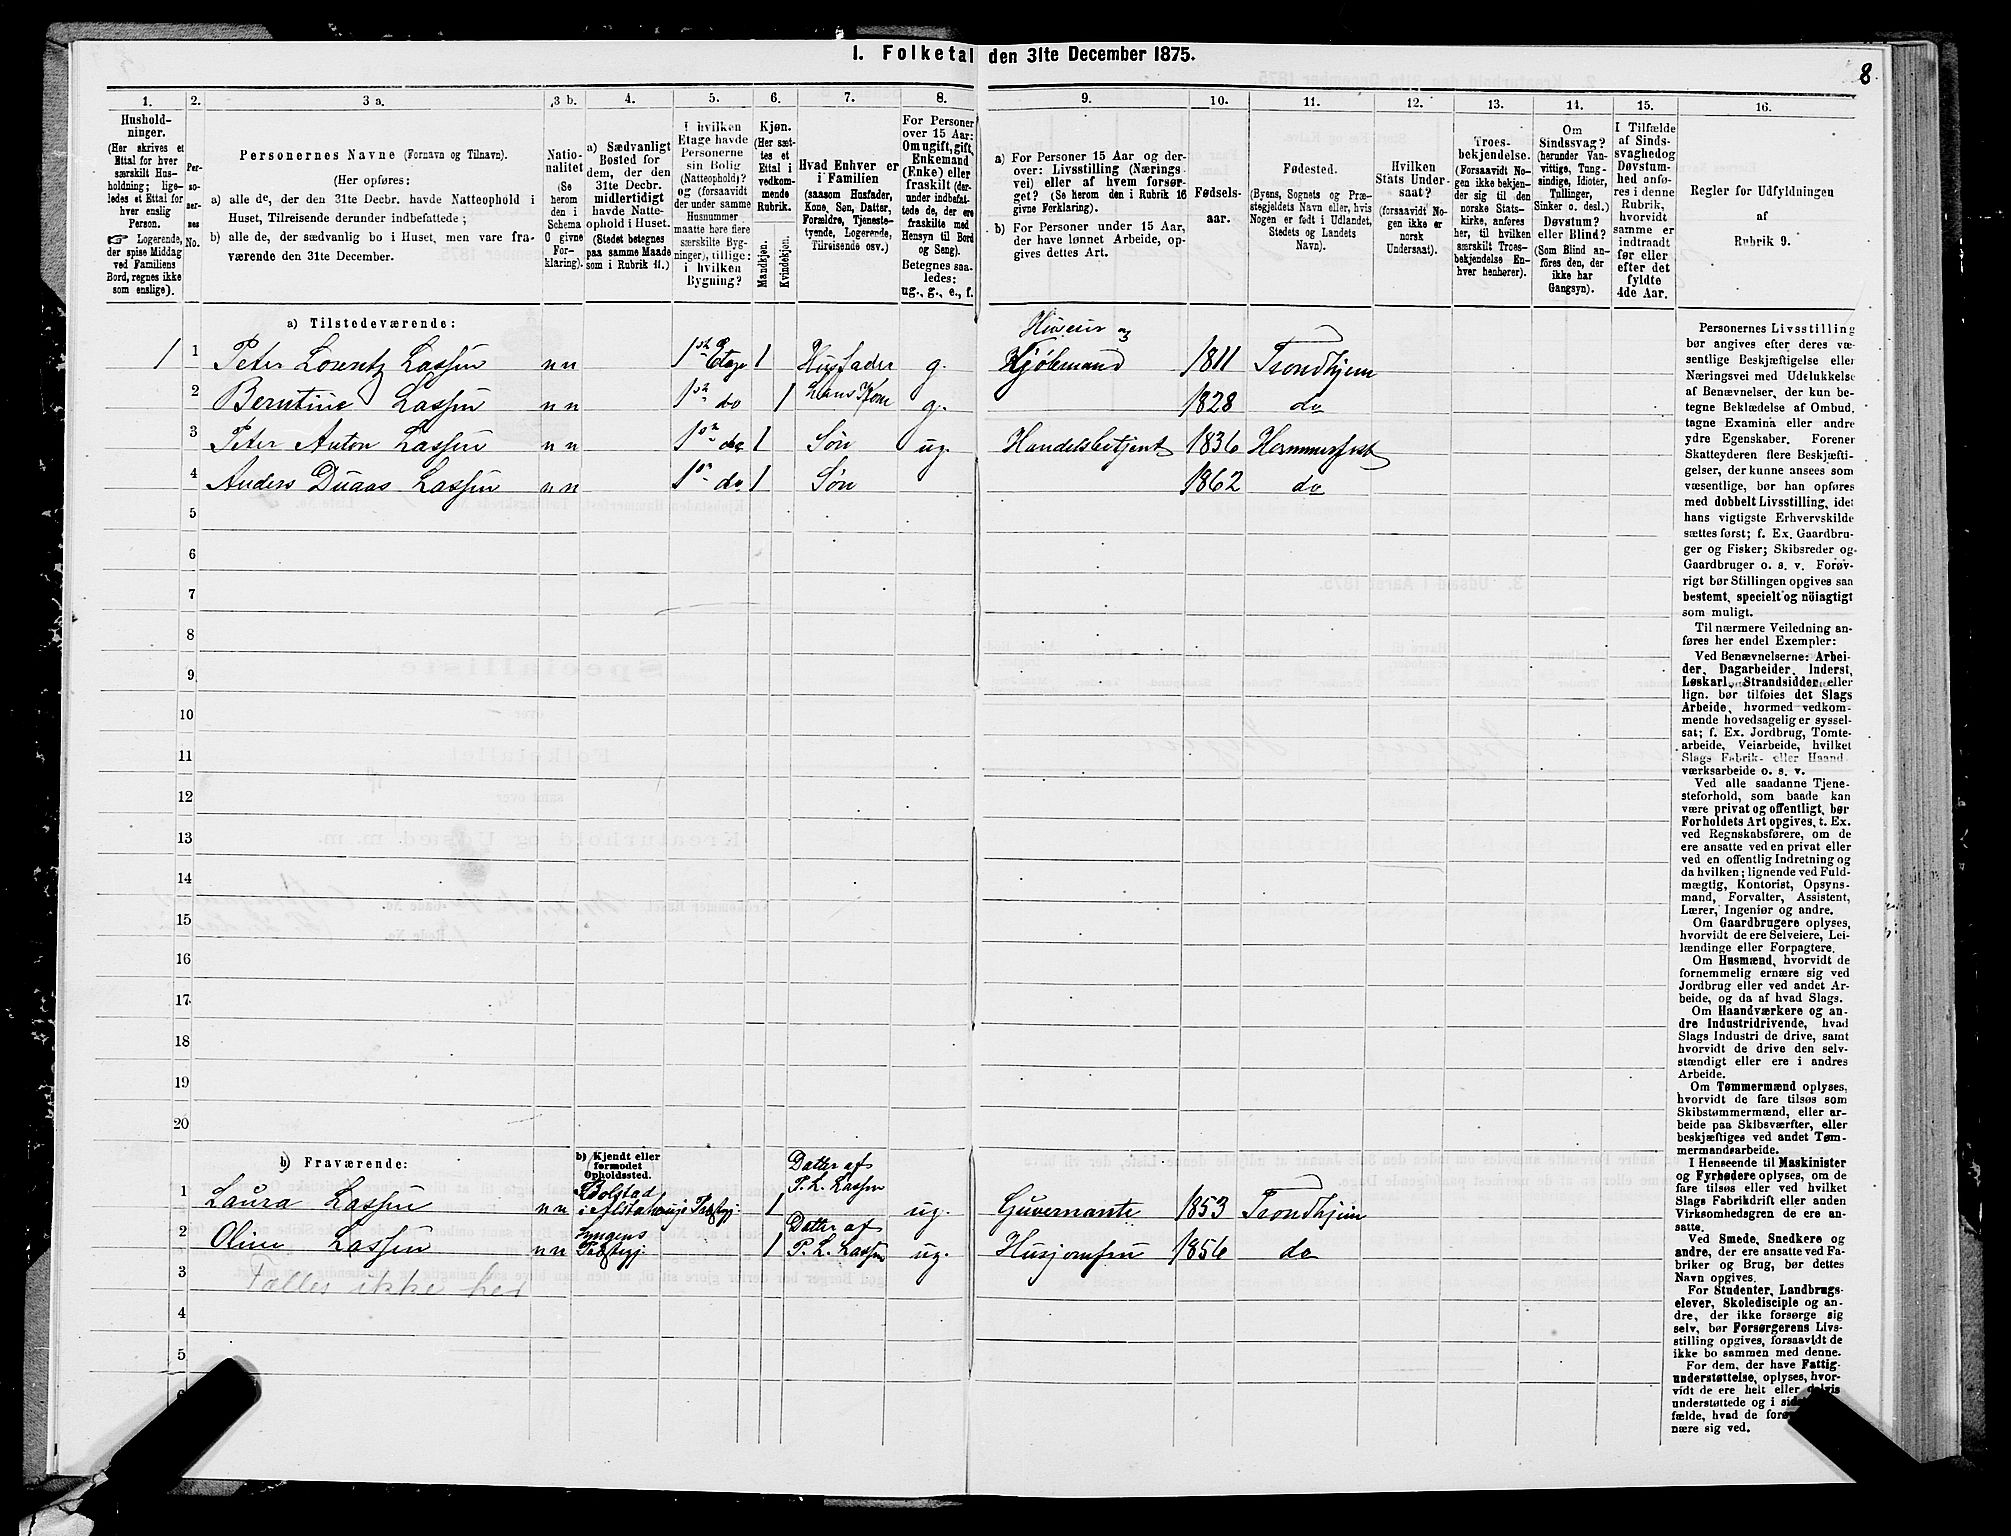 I. Folketal den 31te December 1875.
8
1. 2. 3 a. 3 b. 4. 5. 6. 7. 8. 9. 10. 11. 12. 13. 14. 15. 16.
Hushold-
ninger.
(Her skrives et
Ettal for hver
særskilt Hus-
holdning; lige-
ledes et Ettal for
hver enslig
Person.
☞ Logerende,
der spise Middag
ved Familiens
Bord, regnes ikke
som enslige).
Per-
so-
ner-
nes
No.
Personernes Navne (Fornavn og Tilnavn).
(Her opføres:
a) alle de, der den 31te Decbr. havde Natteophold i
Huset, Tilreisende derunder indbefattede;
b) alle de, der sædvanlig bo i Huset, men vare fra-
værende den 31te December.
Natio-
nalitet
(Se
herom
den i
Schema
O givne
For-
klaring).
a) Sædvanligt
Bosted for
dem, der den
31te Decbr.
midlertidigt
havde Natte-
ophold i Huset.
(Stedet betegnes
paa samme Maade
som i Rubrik 11.)
I hvilken
Etage havde
Personerne
sin Bolig
(Natteophold)?
og (forsaavidt
der under samme
Husnummer
maatte høre flere
særskilte Byg-
ninger), tillige:
i hvilken
Bygning?
Kjøn.
(Her sæt-
tes et
Ettal i
vedkom-
mende
Rubrik.
Mandkjøn.
Kvindekjøn.
Hvad Enhver er
i Familien
(saasom Husfader,
Kone, Søn, Datter,
Forældre, Tjeneste-
tyende, Logerende,
Tilreisende osv.)
For Personer
over 15 Aar:
Om ugift, gift,
Enkemand
(Enke) eller
fraskilt (der-
under indbefat-
tede de, der ere
fraskilte med
Hensyn til Bord
og Seng).
Betegnes saa-
ledes:
ug., g., e., f.
a) For Personer 15 Aar og der-
over: Livsstilling (Nærings-
vei) eller af hvem forsør-
get? (Se herom den i Rubrik 16
givne Forklaring).
b) For Personer under 15 Aar,
der have lønnet Arbeide, op-
gives dettes Art.
Fødsels-
aar.
Fødested.
(Byens, Sognets og Præ-
stegjeldets Navn eller, hvis
Nogen er født i Udlandet,
Stedets og Landets
Navn).
Hvilken
Stats Under-
saat?
(forsaavidt No-
gen ikke er
norsk
Undersaat).
Troes-
bekjendelse.
(Forsaavidt No-
gen ikke bekjen-
der sig til den
norske Stats-
kirke, anføres
her, til hvilken
særskilt Troes-
bekjendelse En-
hver henhører).
Om
Sindssvag?
(herunder Van-
vittige, Tung-
sindige, Idioter,
Tullinger,
Sinker o. desl.)
Døvstum?
eller Blind?
(Som Blind an-
føres den, der
ikke har
Gangsyn).
I Tilfælde
af Sinds-
svaghed og
Døvstum-
hed anfø-
res i denne
Rubrik,
hvorvidt
samme er
indtraadt
før eller
efter det
fyldte
4de Aar.
Regler for Udfyldningen
af
Rubrik 9.
a) Tilstedeværende:
1 1 Peter Lorentz Lassen n n 1ste Etage 1 Husfader g. Huseier og Kjøbmand 1811 Trondhjem
2 Berntine Lassen n n 1ste do 1 Hans Kone g. 1828 do
3 Peter Anton Lassen n n 1ste do 1 Søn ug. Handelsbetjent 1836 Hammerfest
4 Anders Duaas Lassen n n 1ste do 1 Søn 1862 do
5
6
7
8
9
10
11
12
13
14
15
16
17
18
19
20
b) Fraværende:
b) Kjendt eller
formodet
Opholdssted.
1 Laura Lassen n n Bolstad i Alstahaugs Præstgj. 1 Datter af P. L. Lassen ug. Guvernante 1853 Trondhjem
2 Oline Lassen n n Lyngens Præstegj. 1 Datter af P. L. Lassen ug. Husjomfru 1856 do
3 Tælles ikke her
4
5
Personernes Livsstilling
bør angives efter deres væ-
sentlige Beskjæftigelse eller
Næringsvei med Udelukkelse
af Benævnelser, der kun be-
tegne Beklædelse af Ombud,
tagne Examina eller andre
ydre Egenskaber. Forener
Skatteyderen flere Beskjæfti-
gelser, der kunne ansees som
væsentlige, bør han opføres
med dobbelt Livsstilling, idet
hans vigtigste Erhvervskilde
sættes først; f. Ex. Gaardbru-
ger og Fisker; Skibsreder og
Gaardbruger o. s. v. Forøv-
rigt bør Stillingen opgives saa
bestemt, specielt og nöiagtigt
som muligt.
Til nærmere Veiledning an-
føres her endel Exempler:
Ved Benævnelserne: Arbei-
der, Dagarbeider, Inderst,
Løskarl, Strandsidder eller
lign. bør tilføies det Slags
Arbeide, hvormed vedkom-
mende hovedsagelig er syssel-
sat; f. Ex. Jordbrug, Tomte-
arbeide, Veiarbeide, hvilket
Slags Fabrik- eller Haand-
værksarbeide o. s. v.
Ved alle saadanne Tjene-
steforhold, som baade kan
være privat og offentligt, bør
Forholdets Art opgives, t. Ex.
ved Regnskabsførere, om de
ere ansatte ved en privat eller
ved en offentlig Indretning og
da hvilken; lignende ved Fuld-
mægtig, Kontorist, Opsyns-
mand, Forvalter, Assistent,
Lærer, Ingeniør og andre.
Om Gaardbrugere oplyses,
hvorvidt de ere Selveiere, Lei-
lændinge eller Forpagtere.
Om Husmænd, hvorvidt de
fornemmelig ernære sig ved
Jordbrug eller ved andet Ar-
beide, og da af hvad Slags.
Om Haandværkere og an-
dre Industridrivende, hvad
Slags Industri de drive, samt
hvorvidt de drive den selv-
stændigt eller ere i andres
Arbeide.
Om Tømmermænd oplyses,
hvorvidt de fare tilsøs som
Skibstømmermænd, eller ar-
beide paa Skibsværfter, eller
beskjæftiges ved andet Tøm-
mermandsarbeide.
I Henseende til Maskinister
og Fyrbødere oplyses, om de
fare tilsøs eller ved hvilket
Slags Fabrikdrift eller anden
Virksomhedsgren de ere an-
satte.
Ved Smede, Snedkere og
andre, der ere ansatte ved Fa-
briker og Brug, bør dettes
Navn opgives.
For Studenter, Landbrugs-
elever, Skoledisciple og an-
dre, der ikke forsørge sig
selv, bør Forsørgerens Livs-
stilling opgives, forsaavidt de
ikke bo sammen med denne.
For dem, der have Fattig-
understøttelse, oplyses, hvor-
vidt de ere helt eller delvis
understøttede og i sid
fælde, hvad de for
nære sig ved.